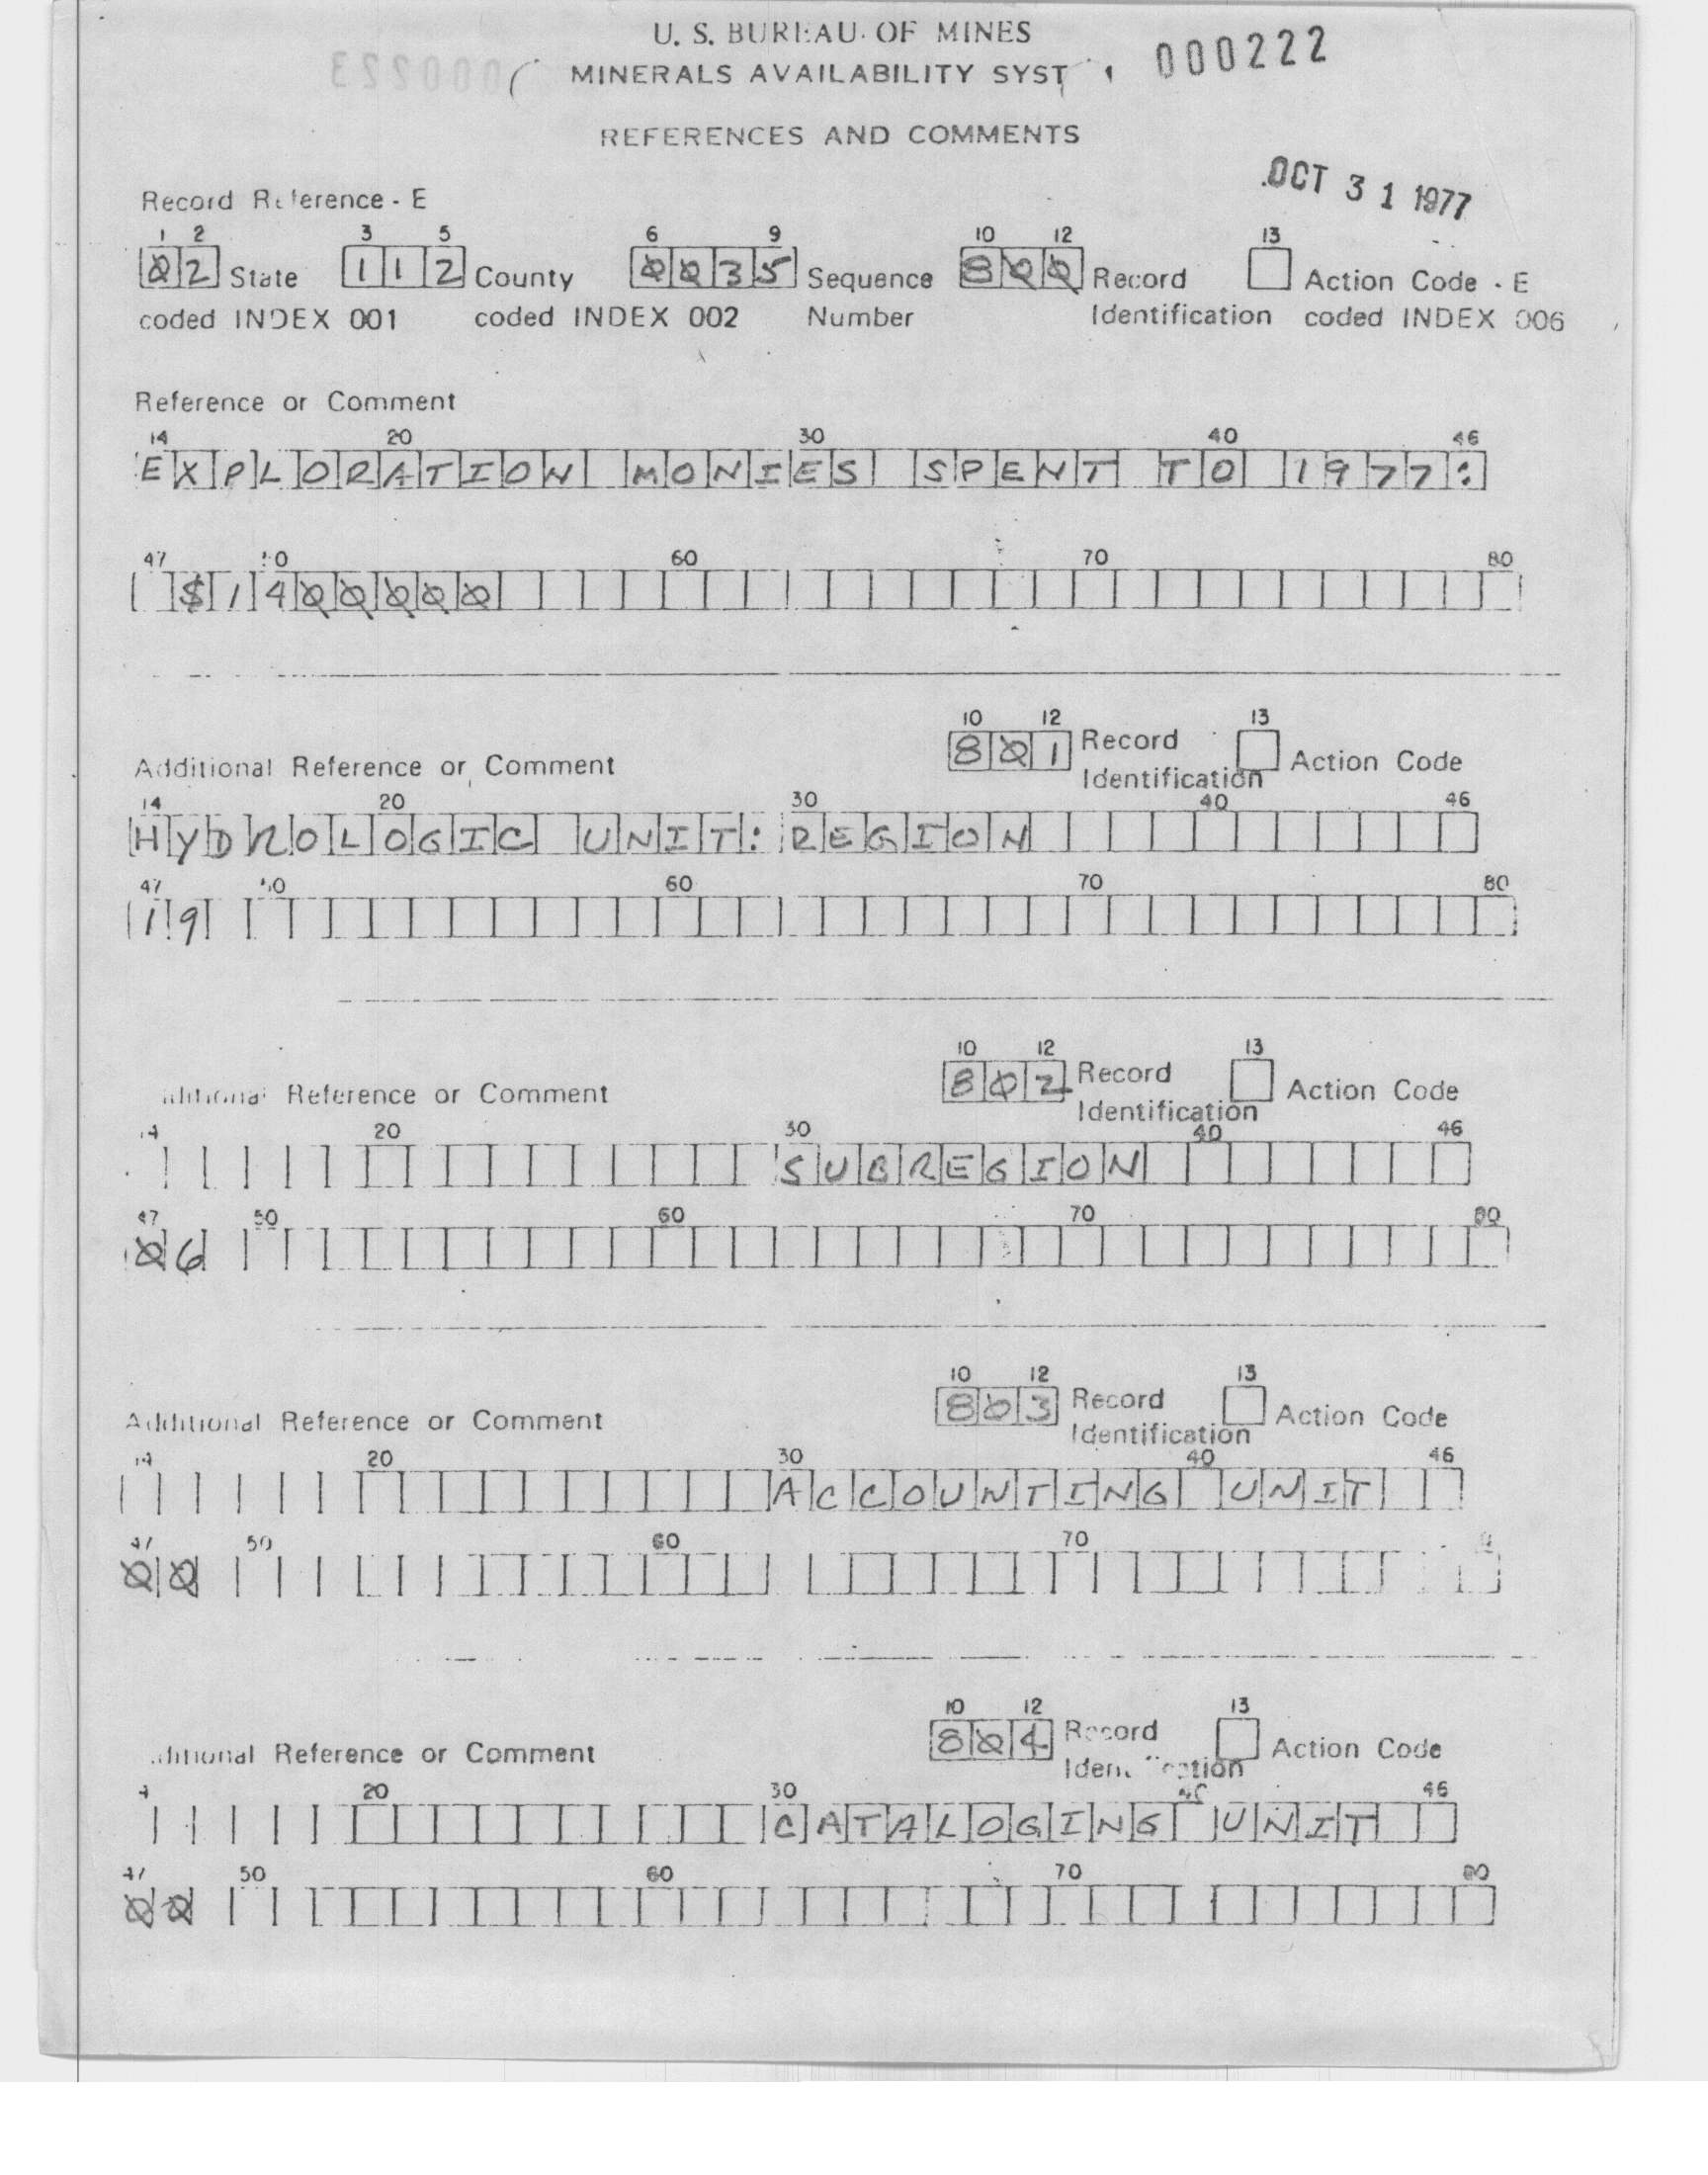 U. S. BUREAU OF MINES
000222
MINERALS AVAILABILITY SYST
REFERENCES AND COMMENTS
OCT 31 1977
Record Reference - E
1 2 3 5 6 9 10 12 13
02 State 112 County 0035 Sequence 800 Record Action Code - E
coded INDEX 001 coded INDEX 002 Number Identification coded INDEX 006
Reference or Comment
14 20 30 40 46
EXPLORATION MONIES SPENT TO 1977:
47 50 60 70 80
$1400000
10 12 13
801 Record Action Code
Additional Reference or Comment Identification
14 20 30 40 46
HYDROLOGIC UNIT: REGION
47 50 60 70 80
19
10 12 13
802 Record Action Code
Additional Reference or Comment Identification
14 20 30 40 46
SUBREGION
47 50 60 70 80
06
10 12 13
803 Record Action Code
Additional Reference or Comment Identification
14 20 30 40 46
ACCOUNTING UNIT
47 50 60 70
00
10 12 13
804 Record Action Code
Additional Reference or Comment Identification
14 20 30 40 46
CATALOGING UNIT
47 50 60 70 80
00